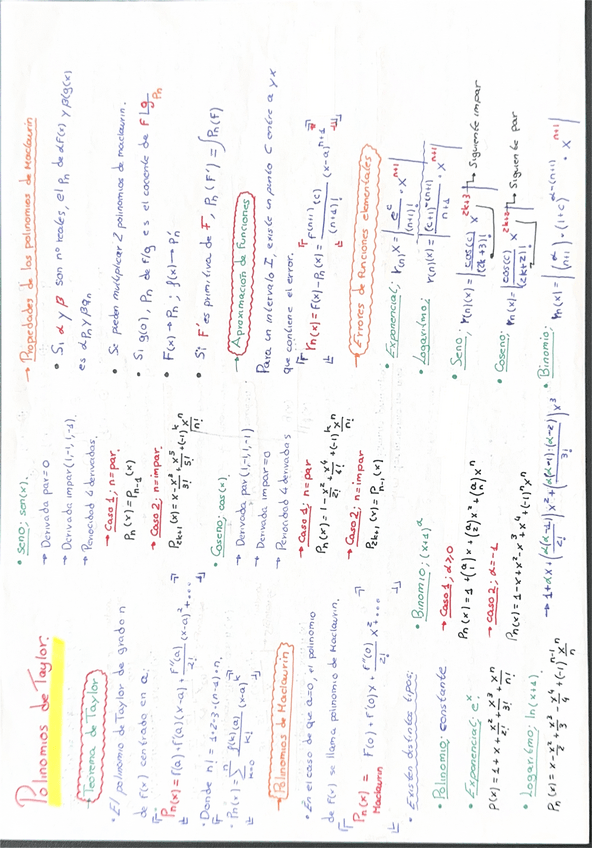 Polinomios de Taylor.
→ Teorema de Taylor
• El polinomio de Taylor de grado n
de f(x) centrado en a:
Pn(x) = f(a) + f'(a)(x-a) + f''(a)/2! (x-a)² + ...
• Donde n! = 1·2·3·(n-1)·n.
• Pn(x) = ∑ k=0 n f(k)(a)/k! (x-a)^k
→ Polinomios de Maclaurin
• En el caso de que a=0, el polinomio
de f(x) se llama polinomio de Maclaurin.
Pn(x) = F(0) + f'(0)x + f''(0)/2! x² + ...
Maclaurin
• Existen distintos tipos:
• Polinomio: constante
• Exponencial: e^x
P(x) = 1 + x + x²/2! + x³/3! + x^n/n!
• Logaritmo; ln(x+1).
Pn(x) = x - x²/2 + x³/3 - x⁴/4 + (-1)^n-1 x^n/n
• Seno; sen(x).
→ Derivada par = 0
→ Derivada impar (1,-1,1,-1)
→ Periocidad 4 derivadas.
→ Caso 1; n=par.
Pn(x) = Pn-1(x)
→ Caso 2; n=impar.
P2k+1(x) = x - x³/3! + x⁵/5! + (-1)^k x^n/n!
• Coseno; cos(x).
→ Derivada par (1,-1,1,-1)
→ Derivada impar = 0
→ Periocidad 4 derivadas
→ Caso 1; n=par
Pn(x) = 1 - x²/2! + x⁴/4! + (-1)^k x^n/n!
→ Caso 2; n=impar
P2k+1(x) = Pn-1(x)
• Binomio; (x+1)^α
→ Caso 1; α≥0
Pn(x) = 1 + (α/1)x + (α/2)x² + (α/n)x^n
→ caso 2; α=-1
Pn(x) = 1 - x + x² - x³ + x⁴ + (-1)^n x^n
→ 1 + αx + (α(α-1)/2!)x² + (α(α-1)·(α-2)/3!)x³
→ Propiedades de los polinomios de Maclaurin
• Si α y β son nº reales, el Pn de αF(x) y βg(x)
es αPn y βqn
• Se pueden multiplicar 2 polinomios de maclaurin.
• Si g(0), Pn de F/g es el cociente de F|g Pn
• F(x) → Pn ; f(x) → P'n
• Si F' es primitiva de F, Pn(F') = ∫Pn(F)
→ Aproximación de funciones
Para un intervalo I, existe un punto c entre a y x
que contiene el error.
rn(x) = F(x) - Pn(x) = f(n+1)(c)/(n+1)! (x-a)^n+1
→ Errores de funciones elementales
• Exponencial; r(n)x = |e^c/(n+1)! · x^n+1|
• Logaritmo; r(n)(x) = |(c+1)^-(n+1)/n+1 · x^n+1|
• Seno; r(n)(x) = |cos(c)/(2k+3)! x^2k+3| → Siguiente impar
• Coseno; rn(x) = |cos(c)/(2k+2)! x^2k+2| → Siguiente par
• Binomio; rn(x) = |(α/n+1) · (1+c)^α-(n+1) · x^n+1|